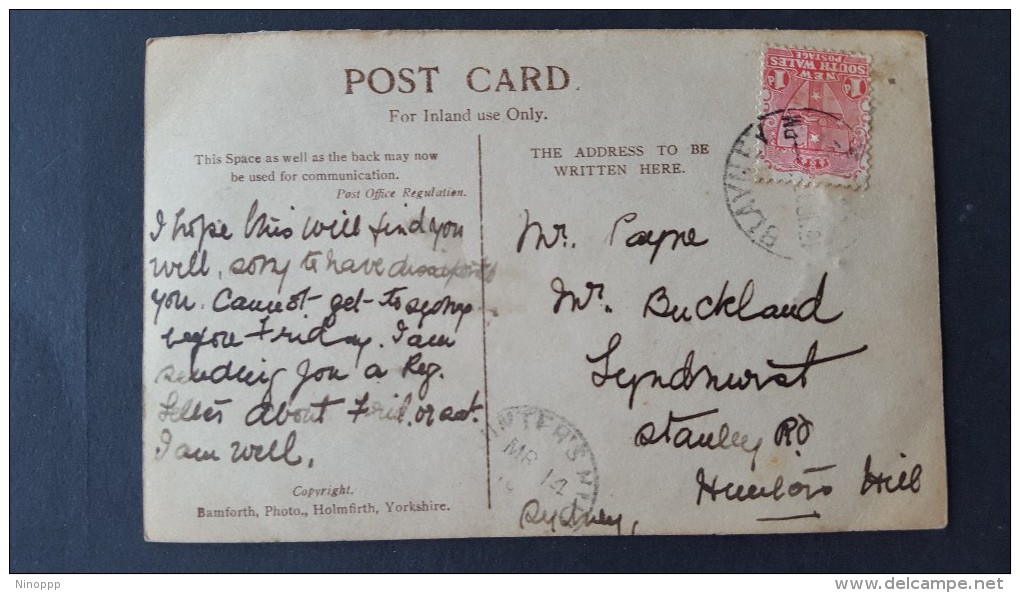 POST CARD.
For Inland use Only.
This Space as well as the back may now
be used for communication.
Post Office Regulation.
THE ADDRESS TO BE
WRITTEN HERE.
NEW
SOUTH WALES
POSTAGE
1d 1d
BLAYNEY
PM
I hope this will find you
well, sorry to have dissapointed
you. Cannot get to sydney
before Friday. I am
sending you a Reg.
Letter about Frid. or sat.
I am well.
Mr. Payne
Mr. Buckland
Lyndhurst
Stanley Rd
Hunters Hill
Sydney,
HUNTER'S HILL
MR 14
Copyright.
Bamforth, Photo., Holmfirth, Yorkshire.
Ninoppp
www.delcampe.net